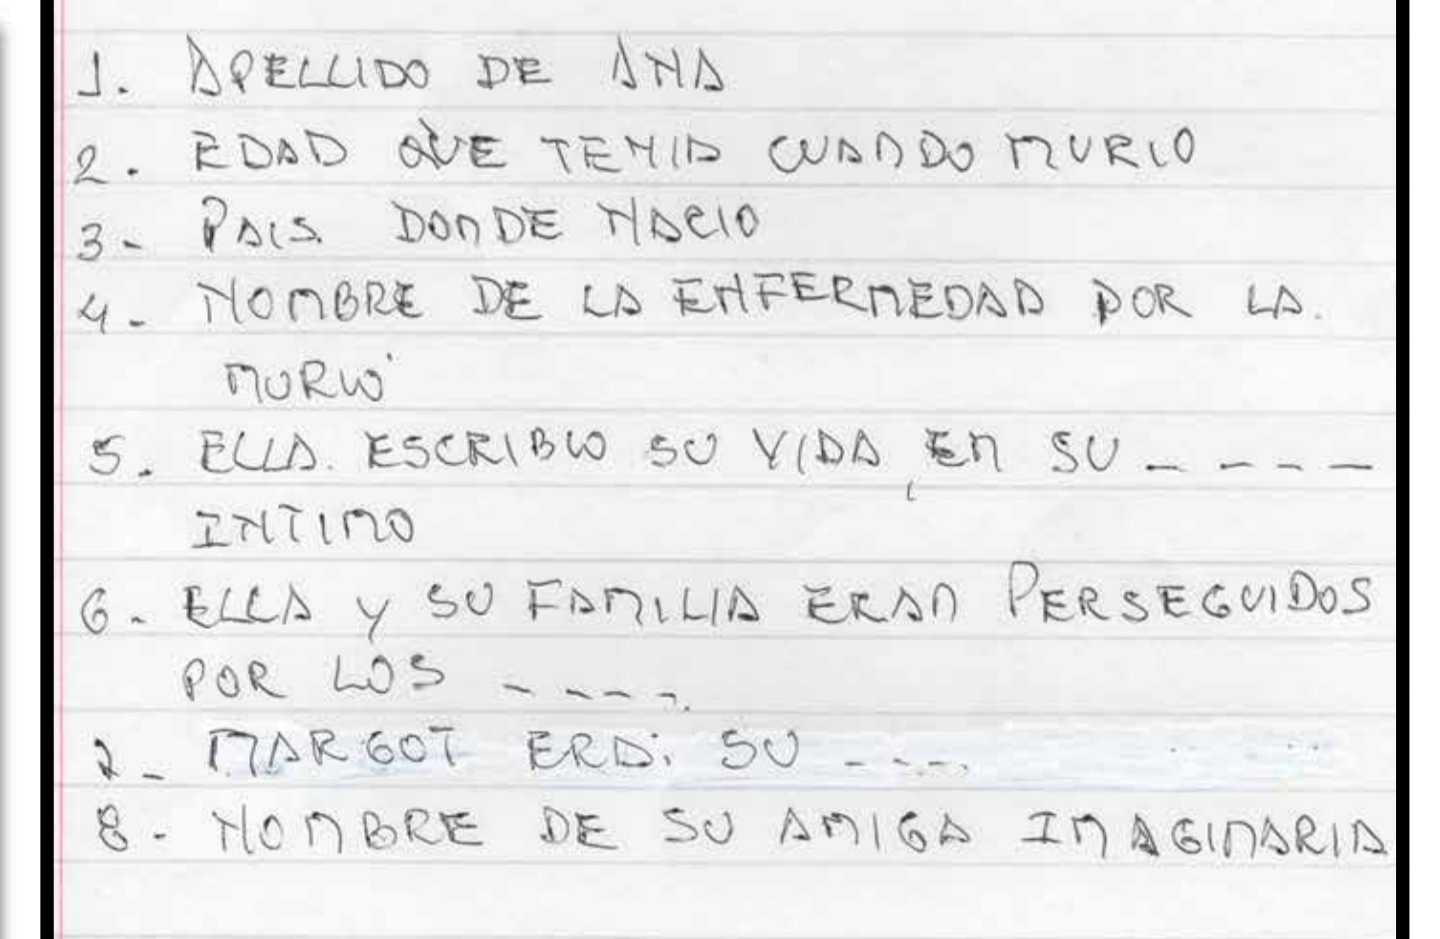 1. APELLIDO DE ANA
2. EDAD QUE TENIA CUANDO MURIO
3- PAIS. DONDE NACIO
4- NOMBRE DE LA ENFERMEDAD POR LA.
MURIÓ
5. ELLA. ESCRIBIO SU VIDA, EN SU _ _ _ _
INTIMO
6- ELLA Y SU FAMILIA ERAN PERSEGUIDOS
POR LOS _ _ _ _.
7- MARGOT ERA. SU _ _ _ _.
8- NOMBRE DE SU AMIGA IMAGINARIA